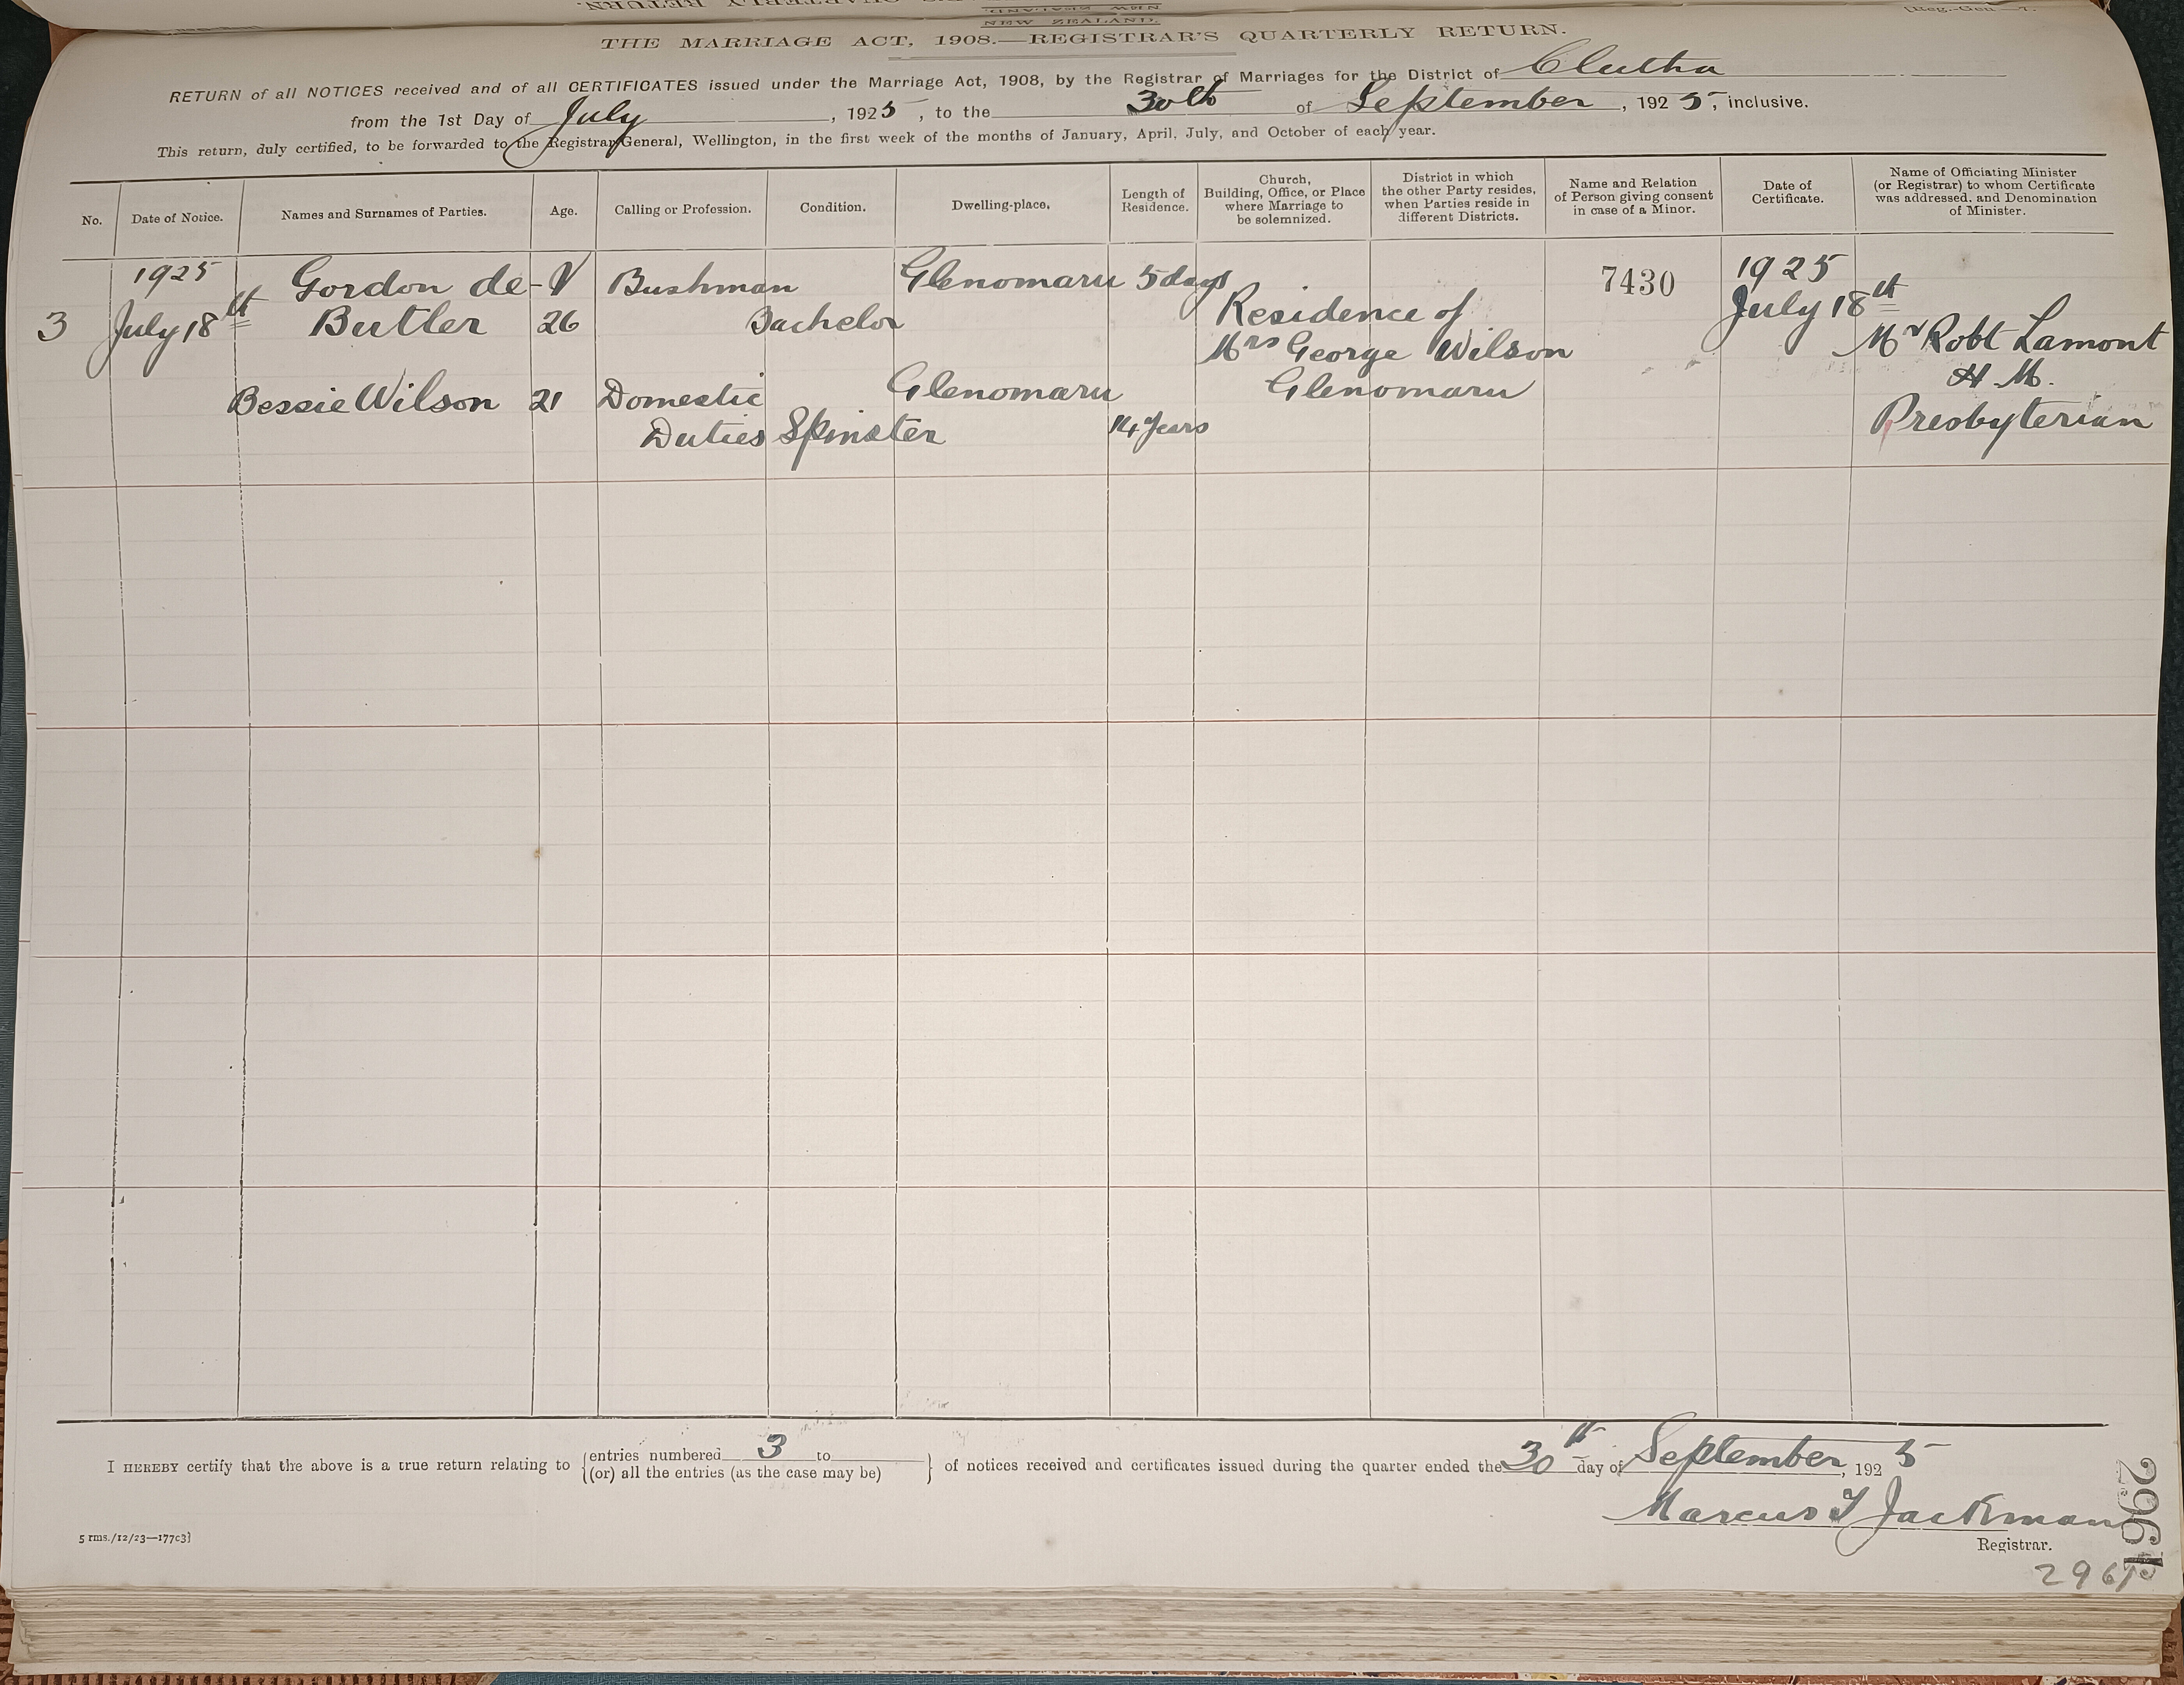 NEW ZEALAND.
THE MARRIAGE ACT, 1908.—REGISTRAR'S QUARTERLY RETURN.
RETURN of all NOTICES received and of all CERTIFICATES issued under the Marriage Act, 1908, by the Registrar of Marriages for the District of Clutha
from the 1st Day of July, 1925, to the 30th of September, 1925, inclusive.
This return, duly certified, to be forwarded to the Registrar General, Wellington, in the first week of the months of January, April, July, and October of each year.
No. Date of Notice. Names and Surnames of Parties. Age. Calling or Profession. Condition. Dwelling-place. Length of Residence. Church, Building, Office, or Place where Marriage to be solemnized. District in which the other Party resides, when Parties reside in different Districts. Name and Relation of Person giving consent in case of a Minor. Date of Certificate. Name of Officiating Minister (or Registrar) to whom Certificate was addressed, and Denomination of Minister.
1925 Gordon de-V Bushman Glenomaru 5 days 7430 1925
3 July 18th Butler 26 Bachelor Residence of July 18th
Mrs George Wilson Mr Robt Lamont
Bessie Wilson 21 Domestic Glenomaru Glenomaru H.M.
Duties Spinster 14 years Presbyterian
I HEREBY certify that the above is a true return relating to {entries numbered 3 to
{(or) all the entries (as the case may be)} of notices received and certificates issued during the quarter ended the 30th day of September, 1925
Marcus J Jackman
Registrar.
5 rms./12/23—177c3]